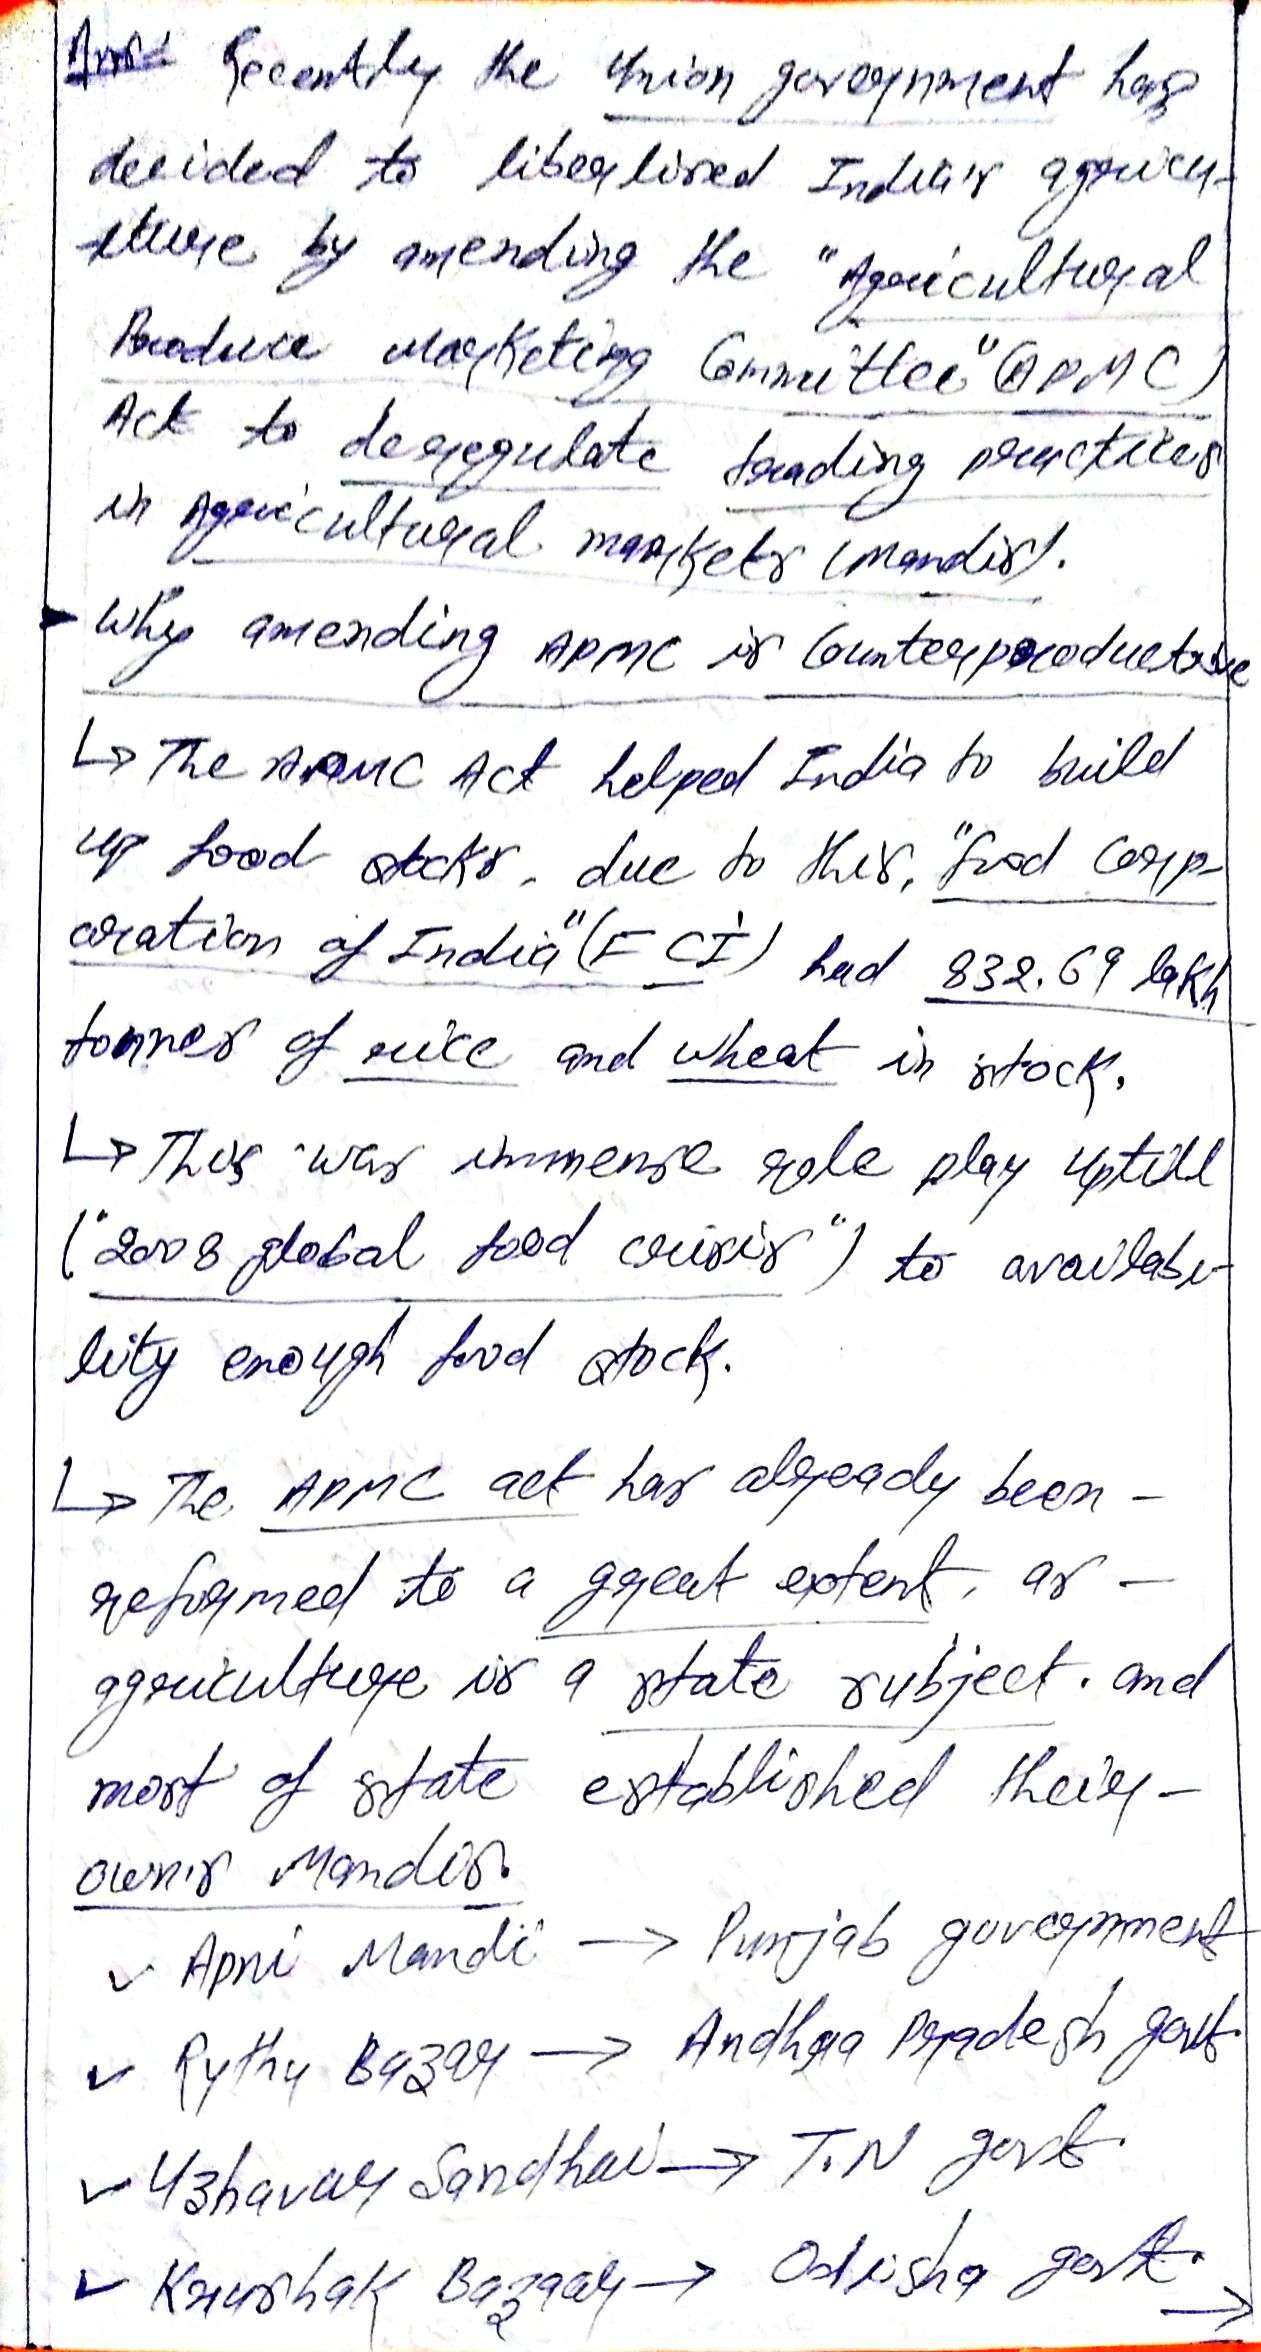 Ans:- Recently the Union government has
decided to liberlised India's agricu-
lture by amending the "Agricultural
Produce Marketing Committee" (APMC)
Act to deregulate trading practices
in Agricultural markets (Mandis).
Why amending APMC is Counterproductive
↳ The APMC Act helped India to build
up food stocks. due to this, "food Corp-
oration of India" (FCI) had 832.69 lakh
tonnes of rice and wheat in stock.
↳ This was immense role play uptill
("2008 global food crisis") to availabi-
lity enough food stock.
↳ The APMC act has already been -
reformed to a great extent, as -
agriculture is a state subject. and
most of state established their -
own's Mandis.
✓ Apni Mandi → Punjab government
✓ Rythu Bazar → Andhra Pradesh govt.
✓ Uzhavar Sandhai → T.N govt.
✓ Krushak Bazaar → Odisha govt.
→